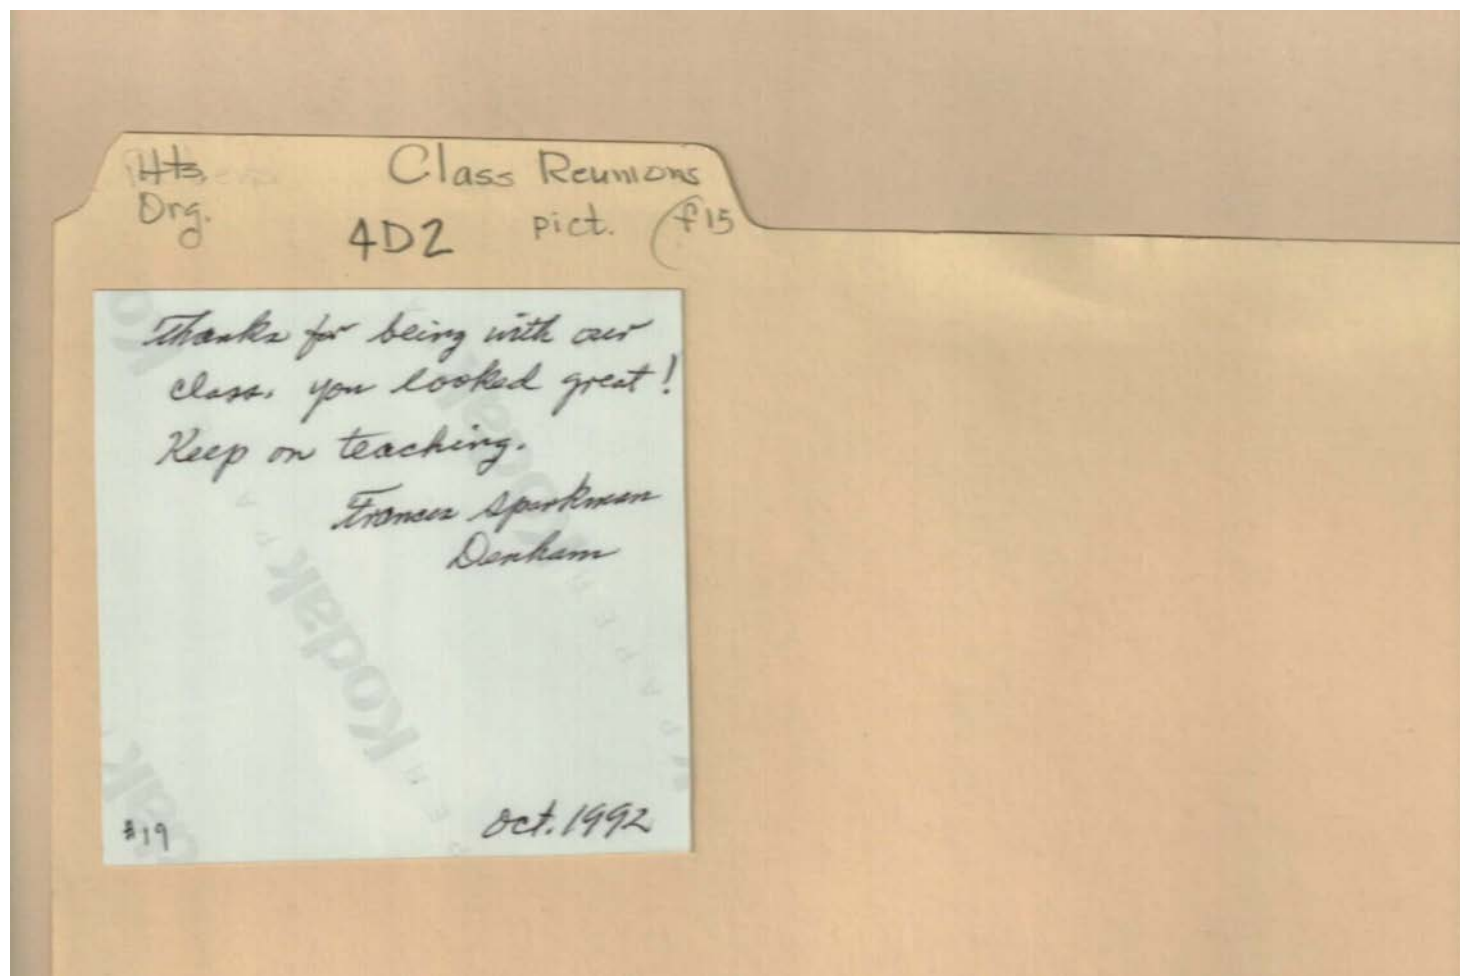 Hts. Class Reunions
Org. 4D2 pict. (f15
Thanks for being with our
class. you looked great!
Keep on teaching.
Frances Sparkman
Denham
Kodak
Kodak
Kodak
#19 Oct. 1992